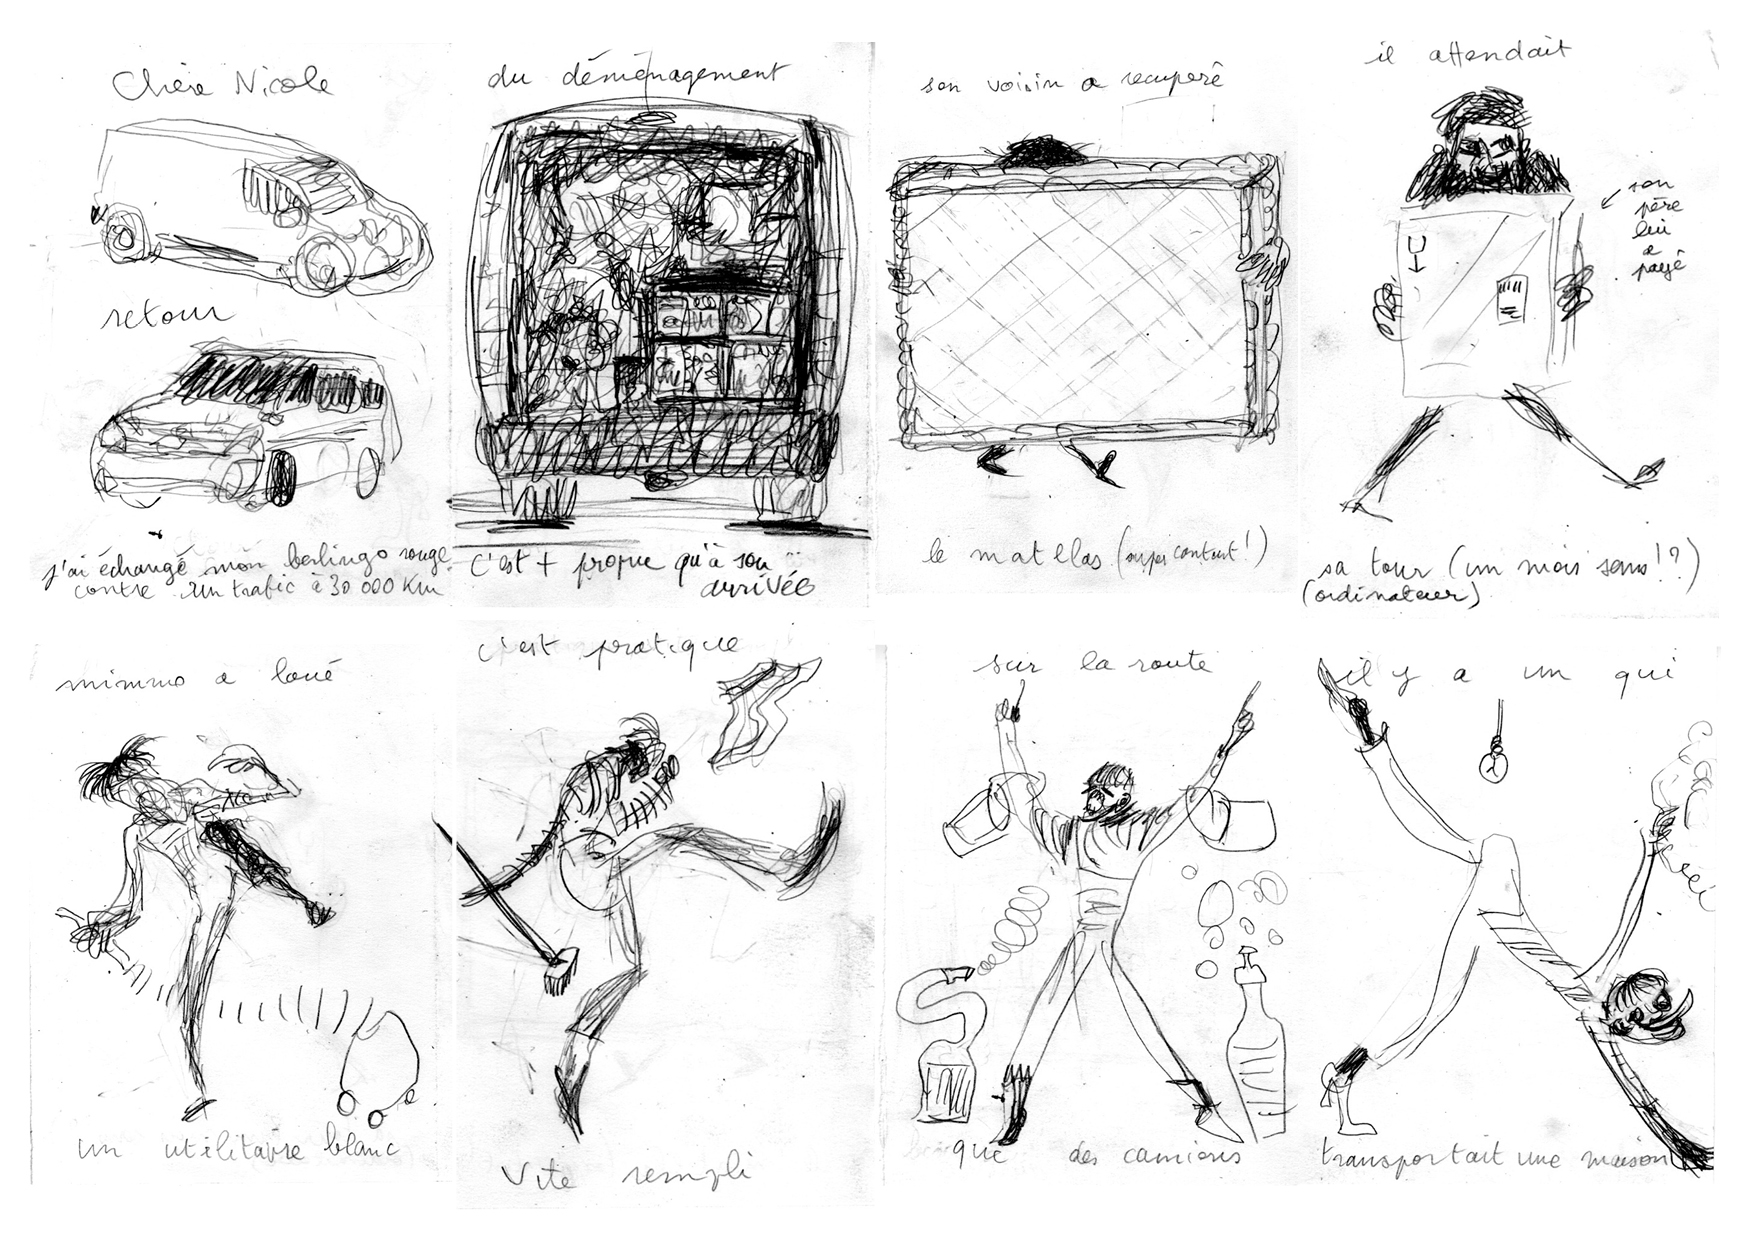 Chère Nicole
retour
j'ai échangé mon berlingo rouge
contre un trafic à 30 000 Km
du déménagement
c'est + propre qu'à son
arrivée
son voisin a recuperé
le matelas (super content!)
il attendait
son
père
lui
a
payé
sa tour (un mois sans!?)
(ordinateur)
mimmo a loué
un utilitaire blanc
c'est pratique
vite rempli
sur la route
que des camions
il y a un qui
transportait une maison